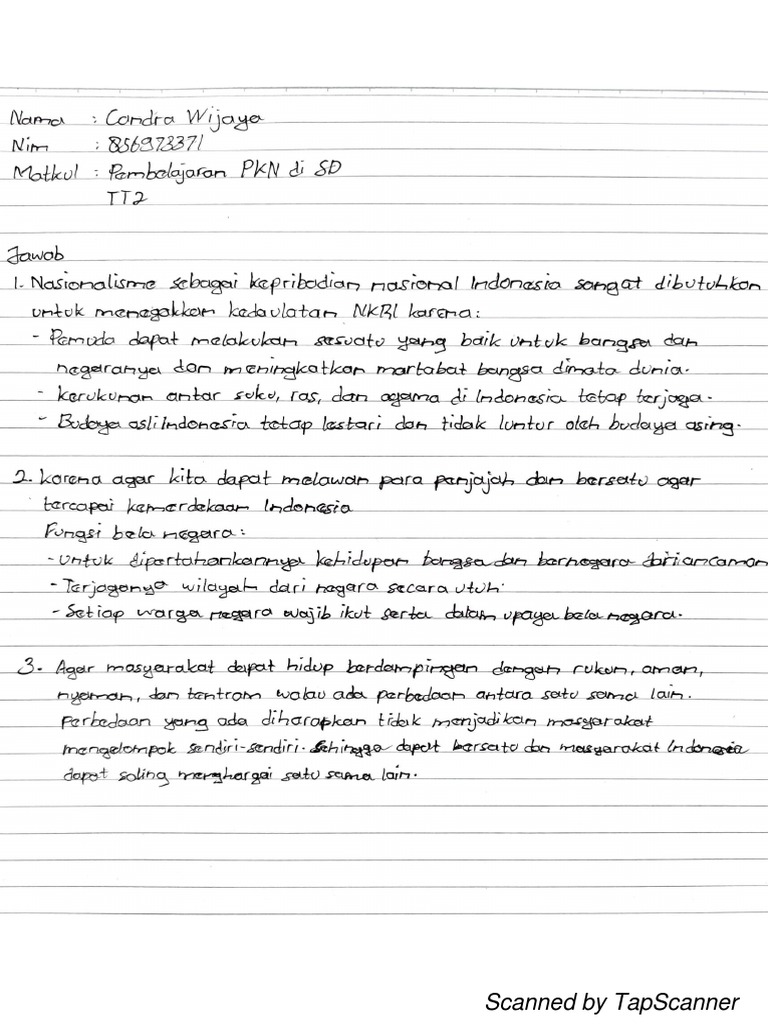 Nama : Candra Wijaya
Nim : 856973371
Matkul : Pembelajaran PKN di SD
TT2
Jawab
1. Nasionalisme sebagai kepribadian nasional Indonesia sangat dibutuhkan
untuk menegakkan kedaulatan NKRI karena:
- Pemuda dapat melakukan sesuatu yang baik untuk bangsa dan
negaranya dan meningkatkan martabat bangsa dimata dunia.
- kerukunan antar suku, ras, dan agama di Indonesia tetap terjaga.
- Budaya asli Indonesia tetap lestari dan tidak luntur oleh budaya asing.
2. Karena agar kita dapat melawan para penjajah dan bersatu agar
tercapai kemerdekaan Indonesia
Fungsi bela negara:
- untuk dipertahankannya kehidupan bangsa dan bernegara dari ancaman
- Terjaganya wilayah dari negara secara utuh.
- Setiap warga negara wajib ikut serta dalam upaya bela negara.
3. Agar masyarakat dapat hidup berdampingan dengan rukun, aman,
nyaman, dan tentram walau ada perbedaan antara satu sama lain.
Perbedaan yang ada diharapkan tidak menjadikan masyarakat
mengelompok sendiri-sendiri. Sehingga dapat bersatu dan masyarakat Indonesia
dapat saling menghargai satu sama lain.
Scanned by TapScanner